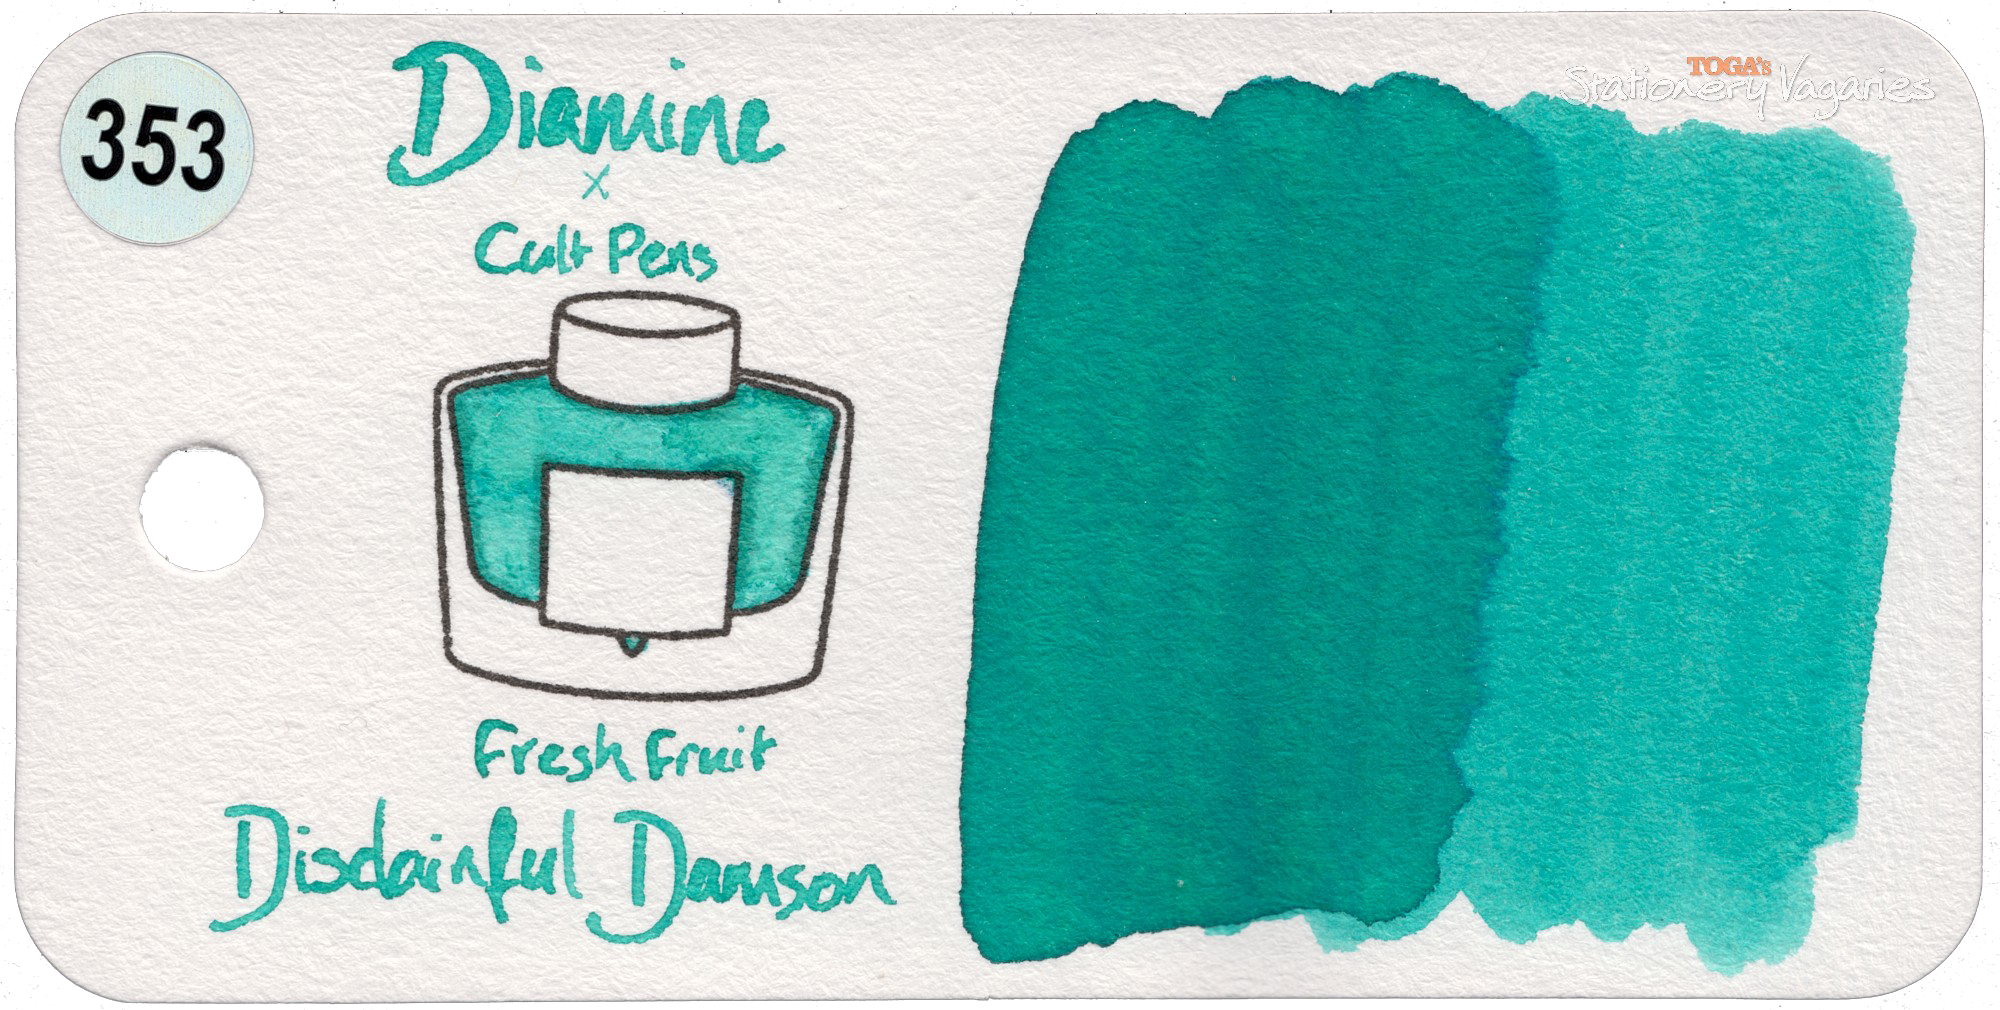 353
Diamine
x
Cult Pens
Fresh Fruit
Disdainful Damson
TOGA's
Stationery Vagaries